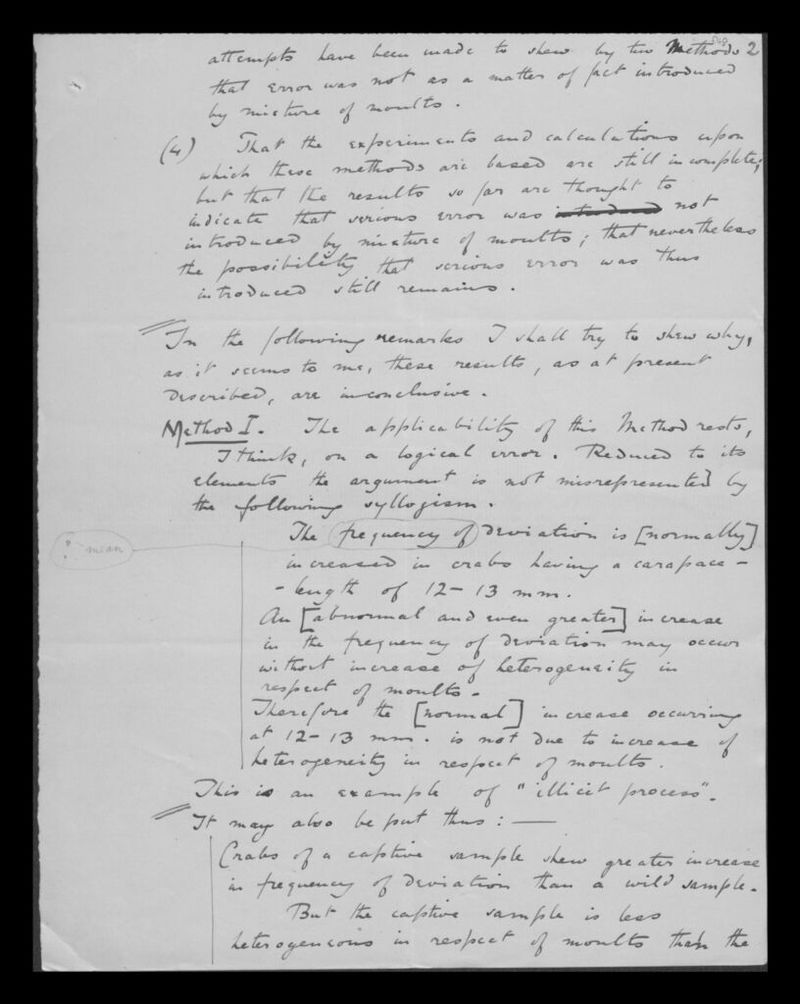 attempts have been made to shew by two Methods 2
that error was not as a matter of fact introduced
by mixture of moults.
(4) That the experiments and calculations upon
which these methods are based are still incomplete;
but that the results so far are thought to
indicate that serious error was introduced not
introduced by mixture of moults; that nevertheless
the possibility that serious error was thus
introduced still remains.
In the following remarks I shall try to shew why,
as it seems to me, these results, as at present
described, are inconclusive.
Method I. The applicability of this Method rests,
I think, on a logical error. Reduced to its
elements the argument is not misrepresented by
the following syllogism.
The frequency of deviation is [normally]
? mean
increased in crabs having a carapace-
-length of 12-13 mm.
An [abnormal and even greater] increase
in the frequency of deviation may occur
without increase of heterogeneity in
respect of moults.
Therefore the [normal] increase occurring
at 12-13 mm. is not due to increase of
heterogeneity in respect of moults.
This is an example of "illicit process".
It may also be put thus:—
Crabs of a captive sample shew greater increase
in frequency of deviation than a wild sample.
But the captive sample is less
heterogeneous in respect of moults than the